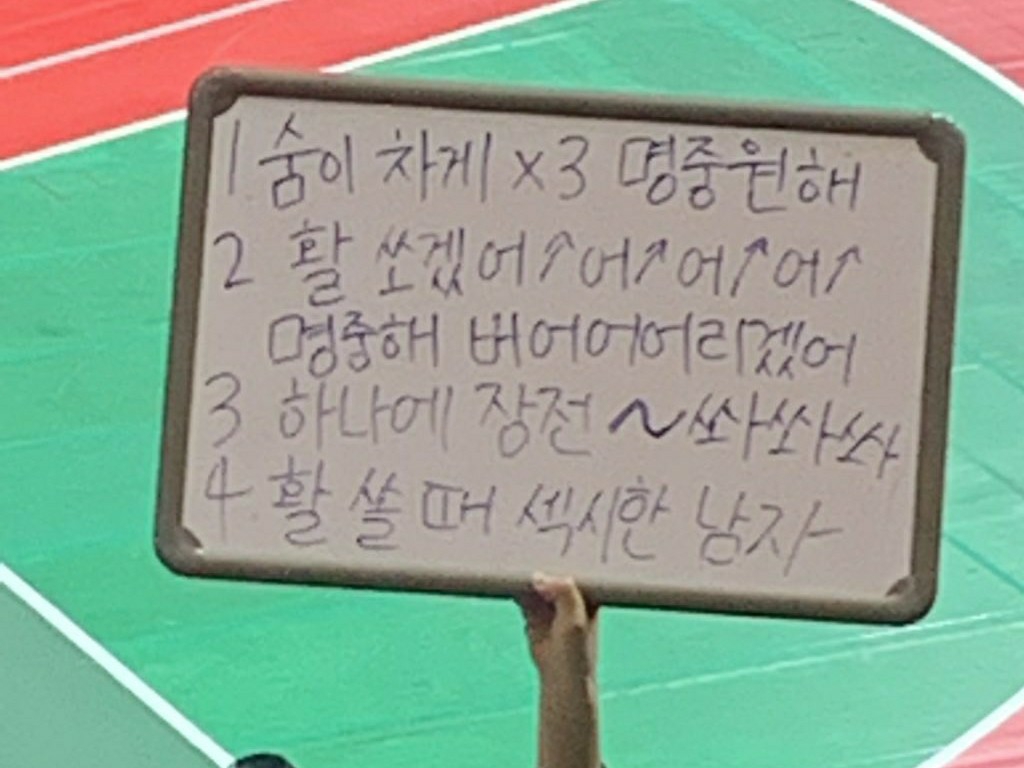 1. 숨이 차게 x3 명중원해
2 활 쏘겠어↑어↑어↑어↑
명중해 버어어어리겠어
3 하나에 장전 ~쏴쏴쏴
4. 활 쏠 때 섹시한 남자